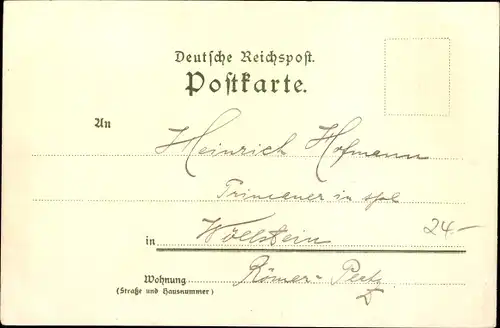 Deutsche Reichspost.
Postkarte.
An Heinrich Hofmann
Primaner in
in Wöllstein 24-
Wohnung Römer-
(Straße und Hausnummer)